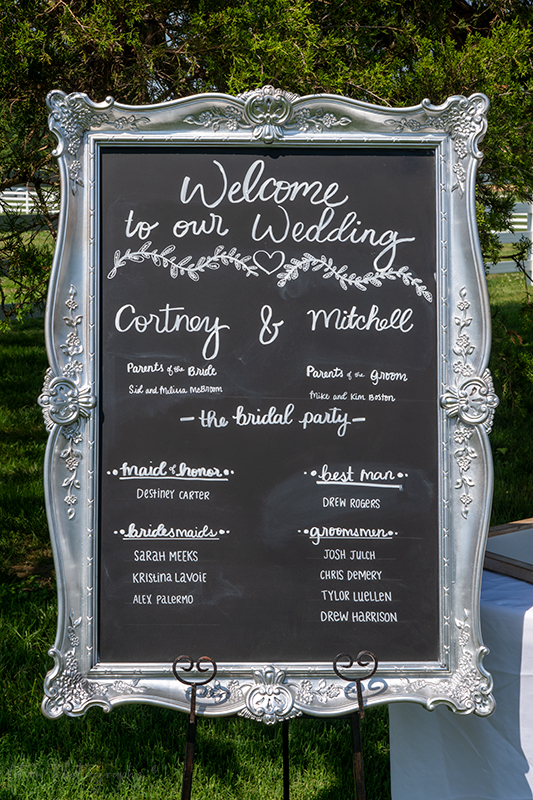 Welcome
to our Wedding
Cortney & Mitchell
Parents of the Bride
Sid and Melissa McBroom
Parents of the Groom
Mike and Kim Boston
- the bridal party -
• maid of honor •
DESTINEY CARTER
• best man •
DREW ROGERS
• bridesmaids •
SARAH MEEKS
KRISTINA LAVOIE
ALEX PALERMO
• groomsmen •
JOSH JULCH
CHRIS DEMERY
TYLOR LUELLEN
DREW HARRISON